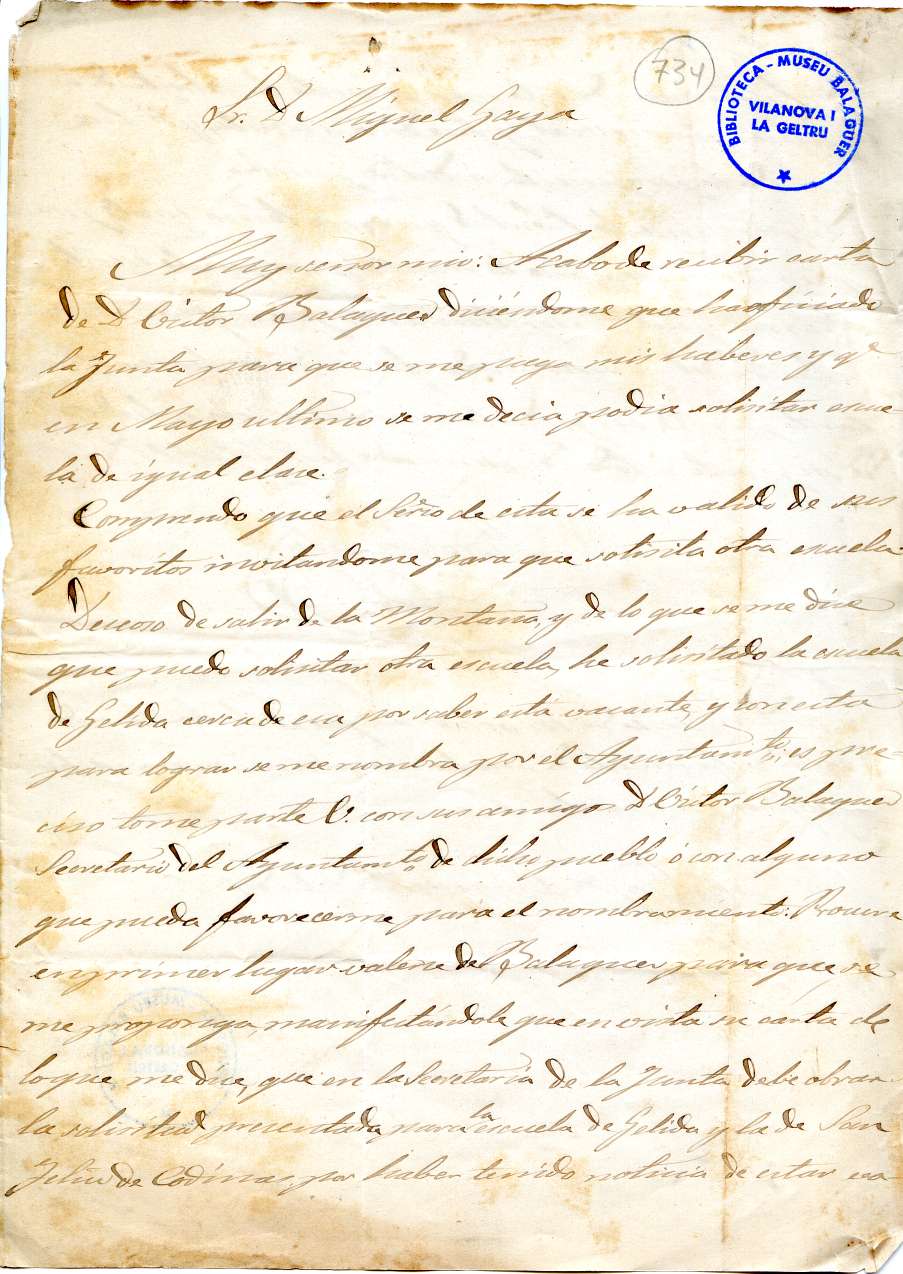 734
BIBLIOTECA - MUSEU BALAGUER
VILANOVA I
LA GELTRU
Sr. D Miguel Gaya
Muy señor mio: Acabo de recibir carta
de D Victor Balaguer diciéndome que ha oficiado
la Junta para que se me paga mis haberes y qe
en Mayo ultimo se me decia podia solisitar escue-
la de igual clase.
Comprendo que el Serio de esta se ha valido de sus
favoritos invitandome para que solisita otra escuela
Deseoso de salir de la Montaña, y de lo que se me dice
que puedo solisitar otra escuela, he solisitado la escuela
de Gelida cerca de esa por saber está vacante, y con esta
para lograr se me nombra por el Ayuntamto, es pre-
ciso tome parte V. con sus amigos D Victor Balaguer
Secretario del Ayuntamto de dicho pueblo ó con alguno
que pueda favorecerme para el nombramiento: Procure
en primer lugar valerse de Balaguer para que se
me proponga, manifestándole que en vista su carta de
lo que me dice, que en la Secretaría de la Junta debe obrar
la solisitud presentada, para la escuela de Gelida y la de San
Feliu de Codinas, por haber tenido noticia de estar va